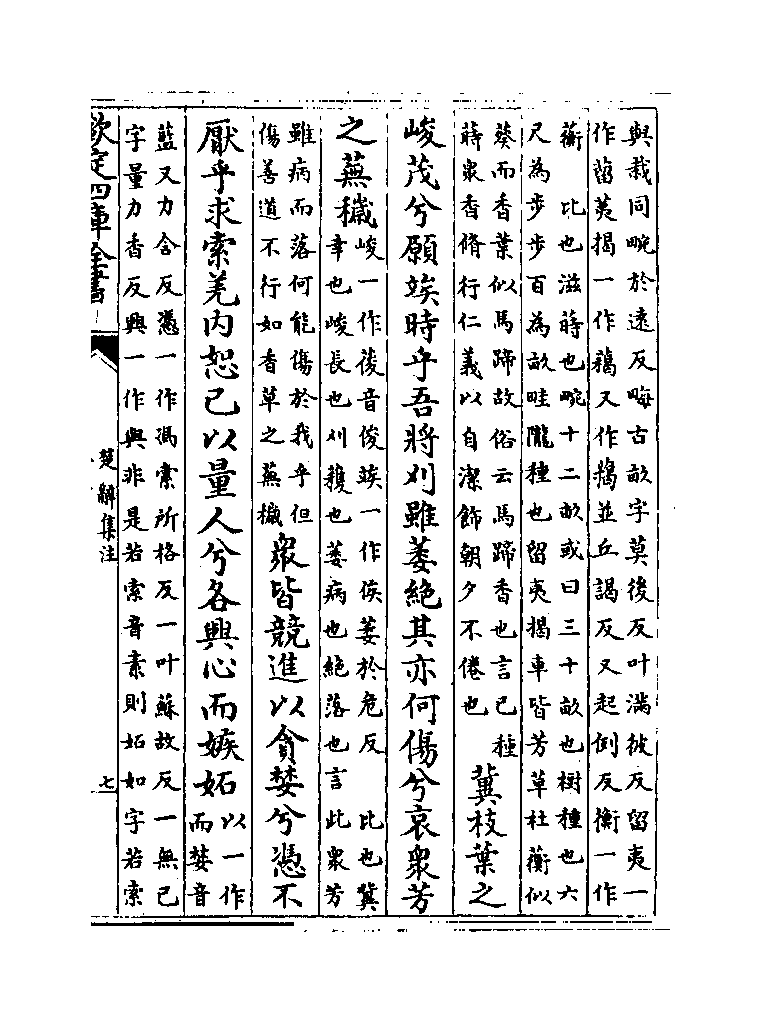 與栽同畹於遠反畮古畝字莫後反叶滿彼反留夷一
作蒥荑揭一作藒又作𦽅並丘謁反又起例反衡一作
蘅 比也滋蒔也畹十二畝或曰三十畝也樹種也六
尺為步步百為畝畦隴種也留夷揭車皆芳草杜蘅似
葵而香葉似馬蹄故俗云馬蹄香也言已種
蒔衆香脩行仁義以自潔飾朝夕不倦也
冀枝葉之
峻茂兮願竢時乎吾將刈雖萎絶其亦何傷兮哀衆芳
之蕪穢
峻一作葰音俊竢一作俟萎於危反 比也冀
幸也峻長也刈穫也萎病也絶落也言 此衆芳
雖病而落何能傷於我乎但
傷善道不行如香草之蕪穢
衆皆競進以貪婪兮憑不
厭乎求索羌内恕已以量人兮各興心而嫉妬
以一作
而婪音
藍又力含反憑一作馮索所格反一叶蘇故反一無已
字量力香反興一作與非是若索音素則妬如字若索
欽定四庫全書
楚辭集注
七